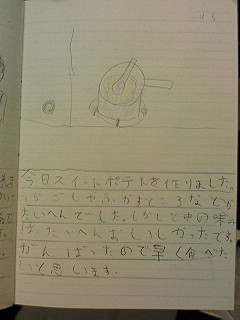 11 3
今日スイートポテトを作りました。
ごしゃぶかすところなどが
たいへんでした。しかし と中の味み
はたいへんおいしかったです。
がんばったので早く食べた
いと思います。